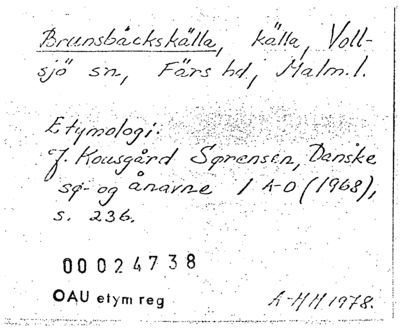 Brunsbäckskälla, källa, Voll-
sjö sn, Färs hd, Malm. l.
Etymologi:
Jf. Kousgård Sørensen, Danske
sø- og ånavne 1 A-D (1968),
s. 236.
00024738
OAU etym reg
A-HH 1978.